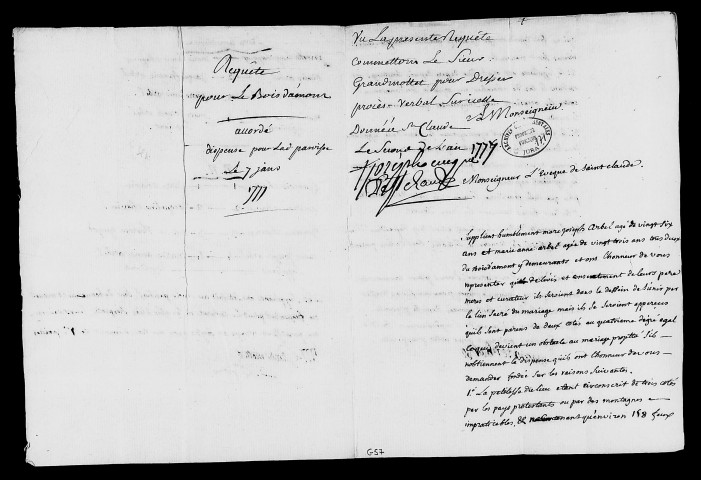 Requête
pour Le Bois d'amont
accordé
dispense pour lad paroisse
Le 7 janv
1777
Vu La presente Requête
Commettons Le Sieur
Grandmottet pour Dresser
procès Verbal Sur icelle
Donné à St Claude
Le Second de L'an 1777
† joseph eveque
De St Claude
à Monseigneur
Monseigneur L'Eveque de Saint Claude.
Supplient humblement marc joseph Arbel agé de vingt six
ans et marie anne arbel agée de vingt trois ans tous deux
du Boisdamont y demeurants et ont Lhonneur de vous
representer que de lavis et consentement de leurs pere
meres et curateur ils seroient dans le dessein de s'unir par
le lien Sacré du mariage mais ils se seroient apperçus
quils sont parens de deux cotés au quatrieme degré egal
ce qui devient un obstacle au mariage projetté Sils
nobtiennent la dispense quils ont lhonneur de vous
demander fondée sur les raisons Suivantes.
1° La petitesse du lieu etant circonscrit de trois cotés
par les pays protestants ou par des montagnes
impraticables, nenviron 158 feux
G57